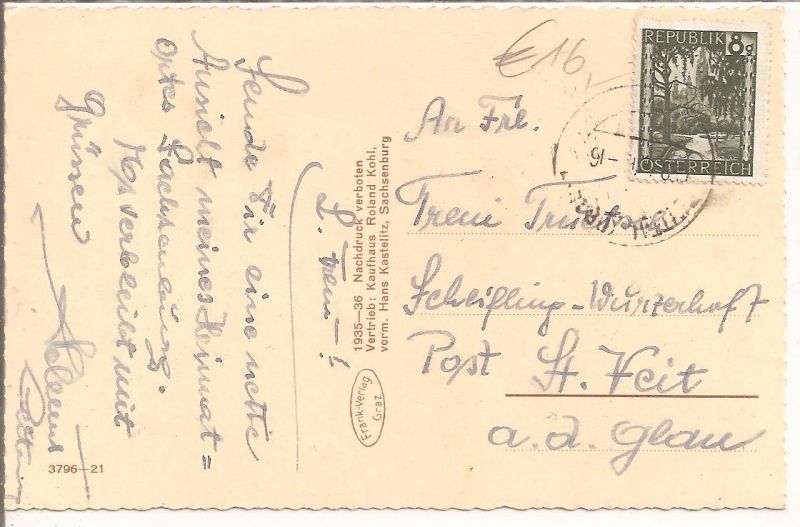 L. Treni - !
Sende Dir eine nette
Ansicht meines Heimat=
ortes Sachsenburg.
verbleibt mit
Grüssen
1935—36 Nachdruck verboten
Vertrieb: Kaufhaus Roland Kohl,
vorm. Hans Kastelitz, Sachsenburg
Frank-Verlag
Graz
3796—21
€16
REPUBLIK 8g
ÖSTERREICH
An Frl.
Treni
Post St. Veit
a. d. Glan